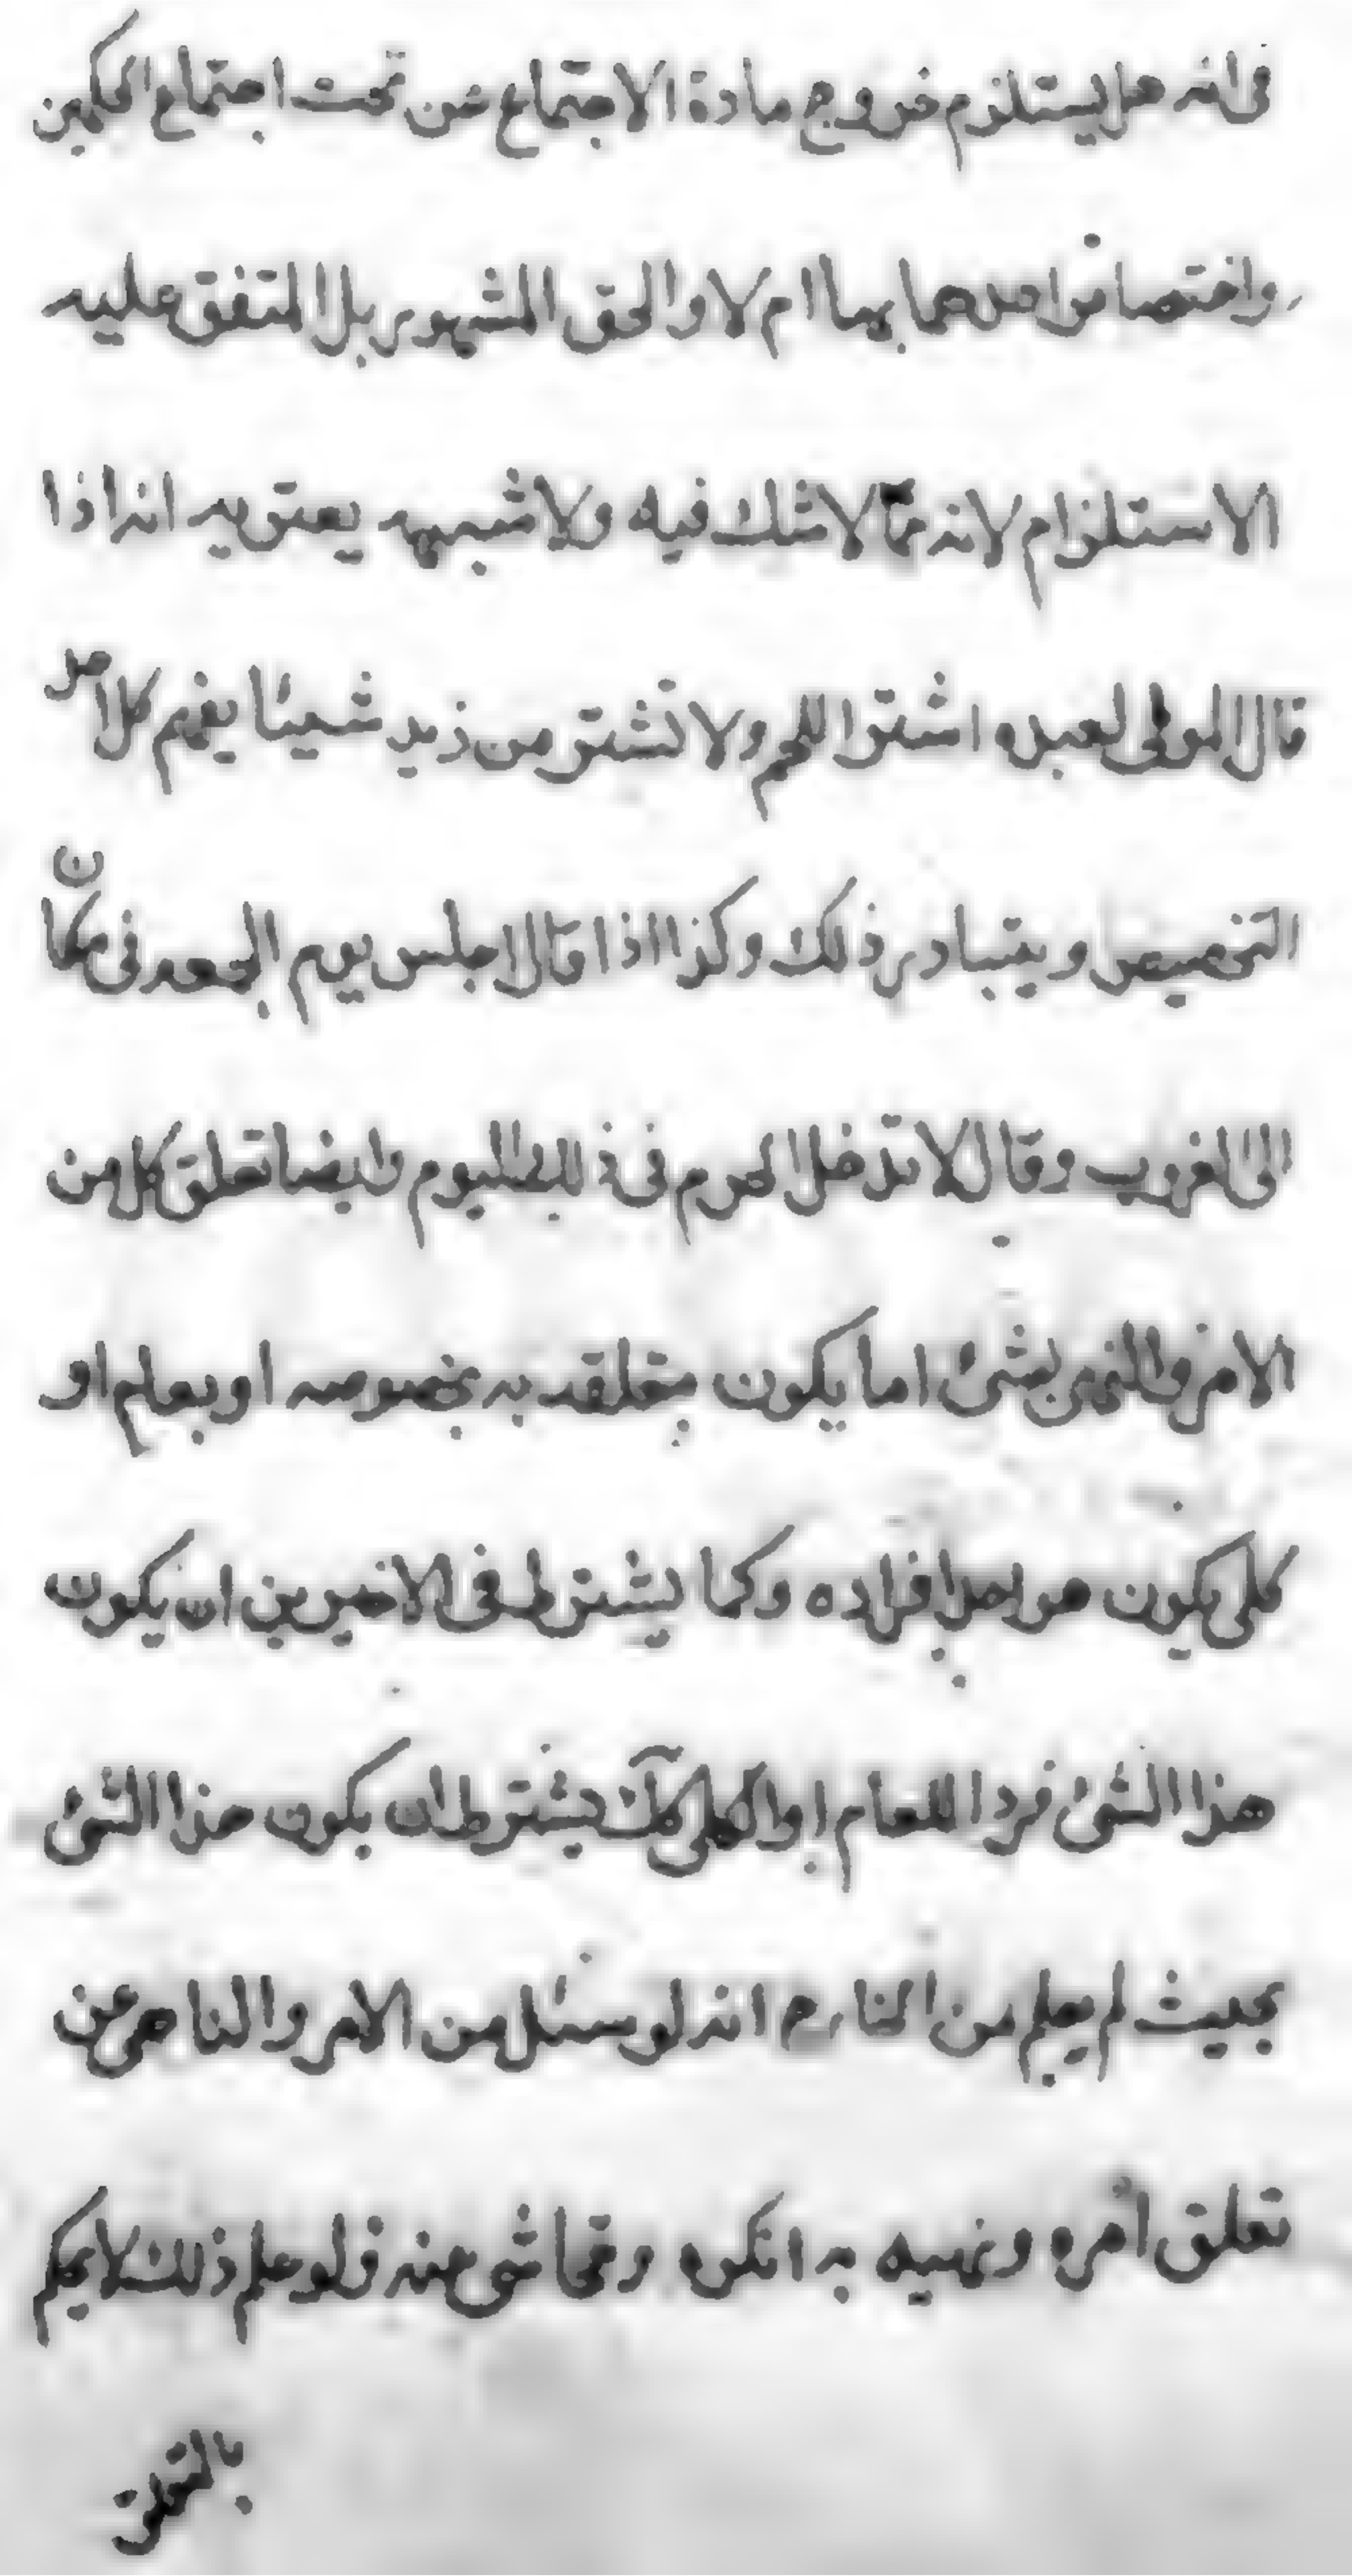 في انه هل يستلزم خروج مادة الاجتماع عن تحت اجتماع الحكمين
واختصاص احدهما بهما ام لا والحق المشهور بل المتفق عليه
الاستلزام لانه مما لا شك فيه ولا شبهه يعتريه انه اذا
قال المولى لعبده اشتر اللحم ولا تشتر من زيد شيئا يفهم كل احد
التخصيص ويتبادر ذلك وكذا اذا قال اجلس يوم الجمعه في مكان
الى الغروب وقال لا تدخل الحرم في ذلك اليوم وايضا تعلق كل من
الامر والنهي بشئ اما يكون بتعلقه به بخصوصه او بعام او
كلي يكون هو احد افراده وكما يشترط في الاخيرين ان يكون
هذا الشئ فردا للعام او الكلي كك يشترط ان يكون هذا الشئ
بحيث لم يعلم من الخارج انه لو سئل من الامر والناهي عن
تعلق امره ونهيه به انكره وتحاشى عنه فلو علم ذلك لا يحكم
بالتعلق